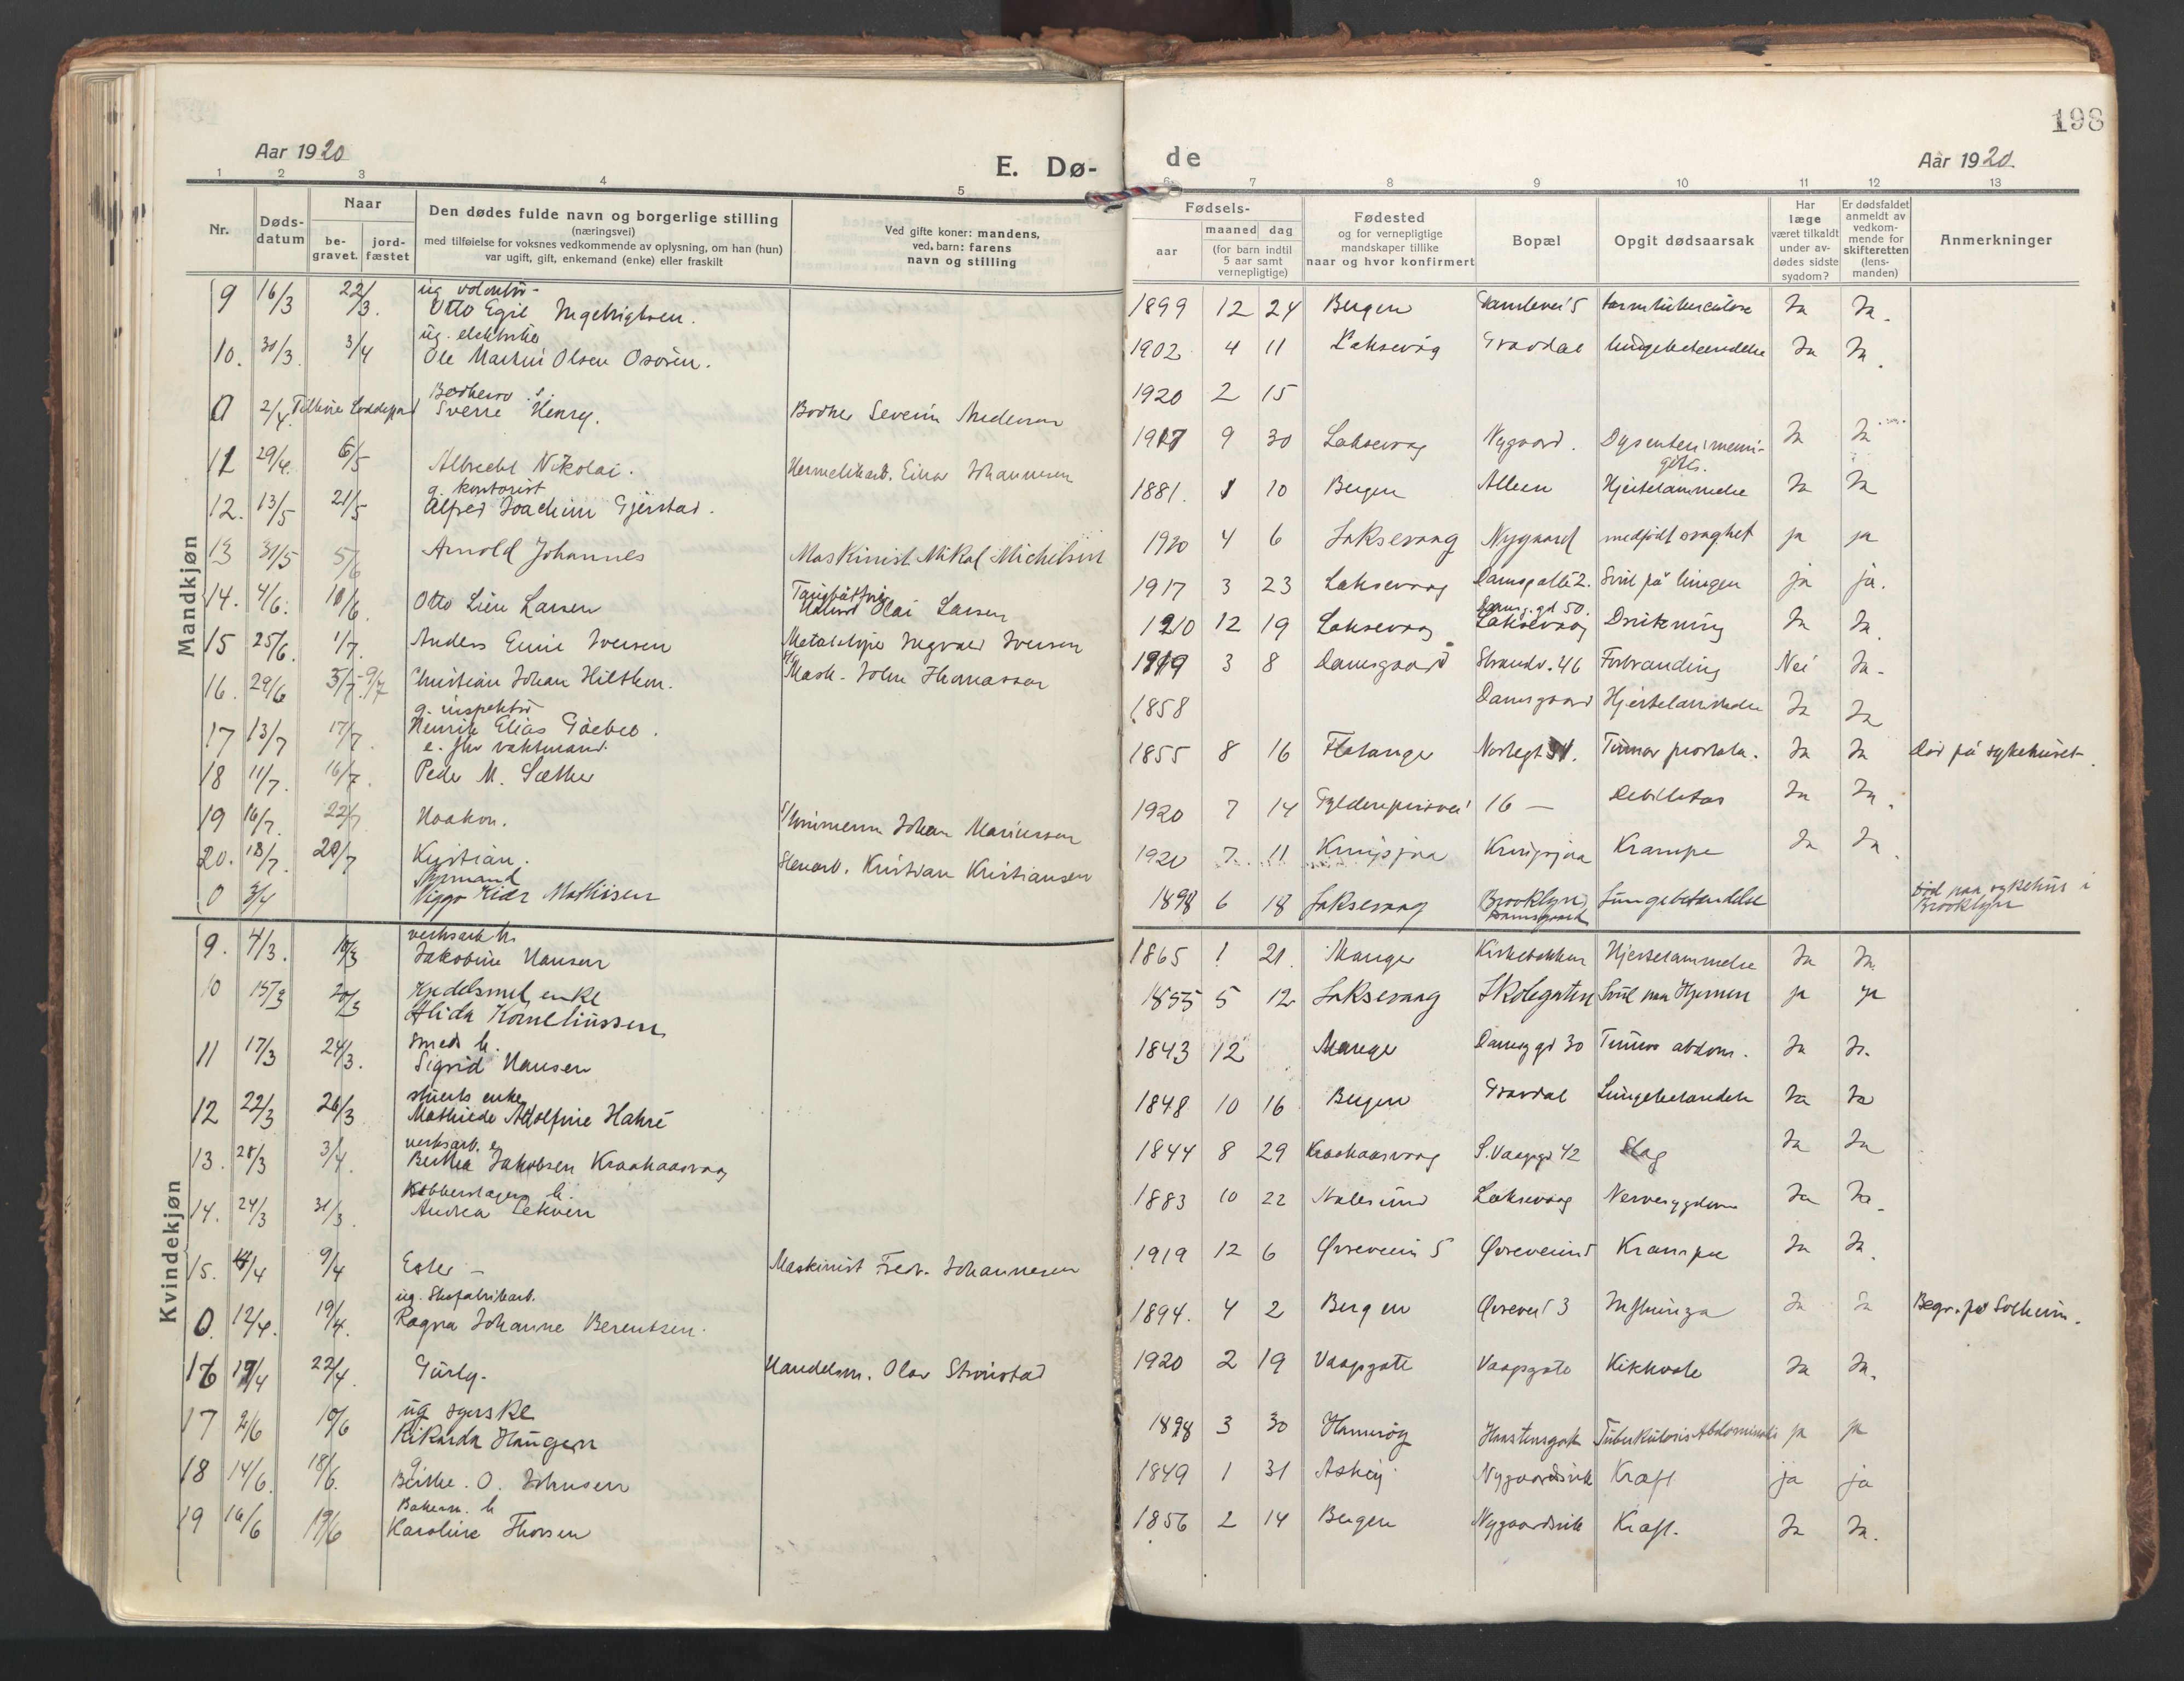 198
Aar 1920
E. Dø-
de
Aar 1920.
1 2 3 4 5 6 7 8 9 10 11 12 13
Nr.
Døds-
datum
Naar
be-
gravet.
jord-
fæstet
Den dødes fulde navn og borgerlige stilling
(næringsvei)
med tilføielse for voksnes vedkommende av oplysning, om han (hun)
var ugift, gift, enkemand (enke) eller fraskilt
Ved gifte koner: mandens,
ved barn: farens
navn og stilling
Fødsels-
aar
maaned dag
(for barn indtil
5 aar samt
vernepligtige)
Fødested
og for vernepligtige
mandskaper tillike
naar og hvor konfirmert
Bopæl
Opgit dødsaarsak
Har
læge
været tilkaldt
under av-
dødes sidste
sygdom?
Er dødsfaldet
anmeldt av
vedkom-
mende for
skifteretten
(lens-
manden)
Anmerkninger
Mandkjøn
ug volontør-
9 16/3 22/3. Otto Egil Ingebrigtsen. 1899 12 24 Bergen Damsvei 5 tarmtuberculose Ja Ja.
ug. elektriker
10. 30/3. 3/4 Ole Martin Olsen Osøren. 1902 4 11 Laksevåg Gravdal lungebetændelse Ja Ja.
0 2/4. Tilhører Loddefjord Sverre Henry. Bødker Severin Andersen 1920 2 15
11 29/4. 6/5 Albrecht Nikolai. Einar Johannesen 1917 9 30 Laksevaag Nygaard. Dysenteri meni-
gitis. Ja Ja
g. kontorist
12. 13/5 21/5 Alfred Joachim Gjerstad. 1881. 1 10 Bergen Alleen Hjertelammelse Ja Ja
13 31/5 5/6 Arnold Johannes Maskinist Mikal Michelsen 1920 4 6 Laksevaag Nygaard medfødt svaghet ja ja
14. 4/6. 10/6. Otto Lien Larsen Olai Larsen 1917 3 23 Laksevaag Damsg allé 2. Svul på lungen ja ja.
Damsg. gd 50.
15 25/6. 1/7. Anders Emil Iversen Metalstøper Ingvald Iversen 1910 12 19 Laksevaag Laksevaag Drukning Ja Ja.
16. 29/6 3/7-9/7 Christian Johan Hilthon. Mask. John Thomassen 1919 3 8 Damsgaard Strandv. 46 Forbrænding Nei Ja.
g. inspektør
17 13/7 17/7. Henrik Elias Goebel. 1858 Damsgaard Hjertelammelse Ja Ja
e. fhv vaktmand.
18 11/7. 16/7. Peder M. Sæther 1855 8 16 Flatanger Tumor prostata. Ja Ja Død på sykehuset.
19 16/7. 22/7 Haakon. Johan Mariussen 1920 7 14 Gyldenprisvei 16 — Debilitas Ja Ja.
20. 18/7. 20/7 Kristian. Stenarb. Kristian Kristiansen 1920 7 11 Knipsjaa Knipsjaa Krampe Ja Ja.
Styrmand
0 3/4 Viggo Kiær Mathisen 1898 6 18 Laksevaag Brooklyn, Lungebetændelse Død paa sykehus i
Damsgaard Brooklyn
Kvindekjøn
verksarb h.
9. 4/3. 10/3 Jakobine Hansen 1865 1 21. Manger Kirkebakken Hjertelammelse Ja Ja.
Kjedelsmed enke
10 15/3 20/3 Alida Korneliussen 1855 5 12 Laksevaag Skolegaten Svul paa Hjernen ja ja
Smeds h.
11 17/3 24/3. Sigrid Hansen 1843 12 Manger Damsg gd 30 Tumor abdom. Ja Ja.
stuerts enke
12 22/3 26/3 Mathilde Adolfine Hakre 1848 10 16 Bergen Gravdal Lungebetændelse Ja Ja
verksarb. e
13. 28/3 3/4. Bertha Jakobsen Kraakaasvaag 1844 8 29 Kraakaasvaag S. Vaagsgt 42 Slag Ja Ja
Kobberslagers h.
14. 24/3 31/3. Andrea Lekven 1883 10 22 Aalesund Laksevaag Nervesygdom Ja Ja.
15. 4/4 9/4 Ester — Maskinist Fredr. Johannesen 1919 12 6 Øvreveien 5 Øvreveien 5 Krampe Ja Ja.
ug. Skofabrikarb.
0. 12/4. 19/4. Ragna Johanne Berentsen. 1894. 4 2 Bergen Øvrevei 3 Influenza Ja Ja Begr. på Solheim.
16 19/4 22/4. Gurly. Handelsm. Olav Strønstad 1920 2 19 Vaagsgate Vaagsgate Kikhoste Ja Ja.
ug syerske
17 2/6 10/6 Rikarda Haugen 1898 3 30 Hamrøy Tuberkulosis Abdominalis ja ja
18 14/6. 18/6. Berthe. O. Johnsen 1849 1 31 Askøy Nygaardsvik Kræft ja ja
Bakerm. h
19 16/6 19/6 Karoline Thorsen 1856 2 14 Bergen Nygaardsvik Kræft. Ja Ja.